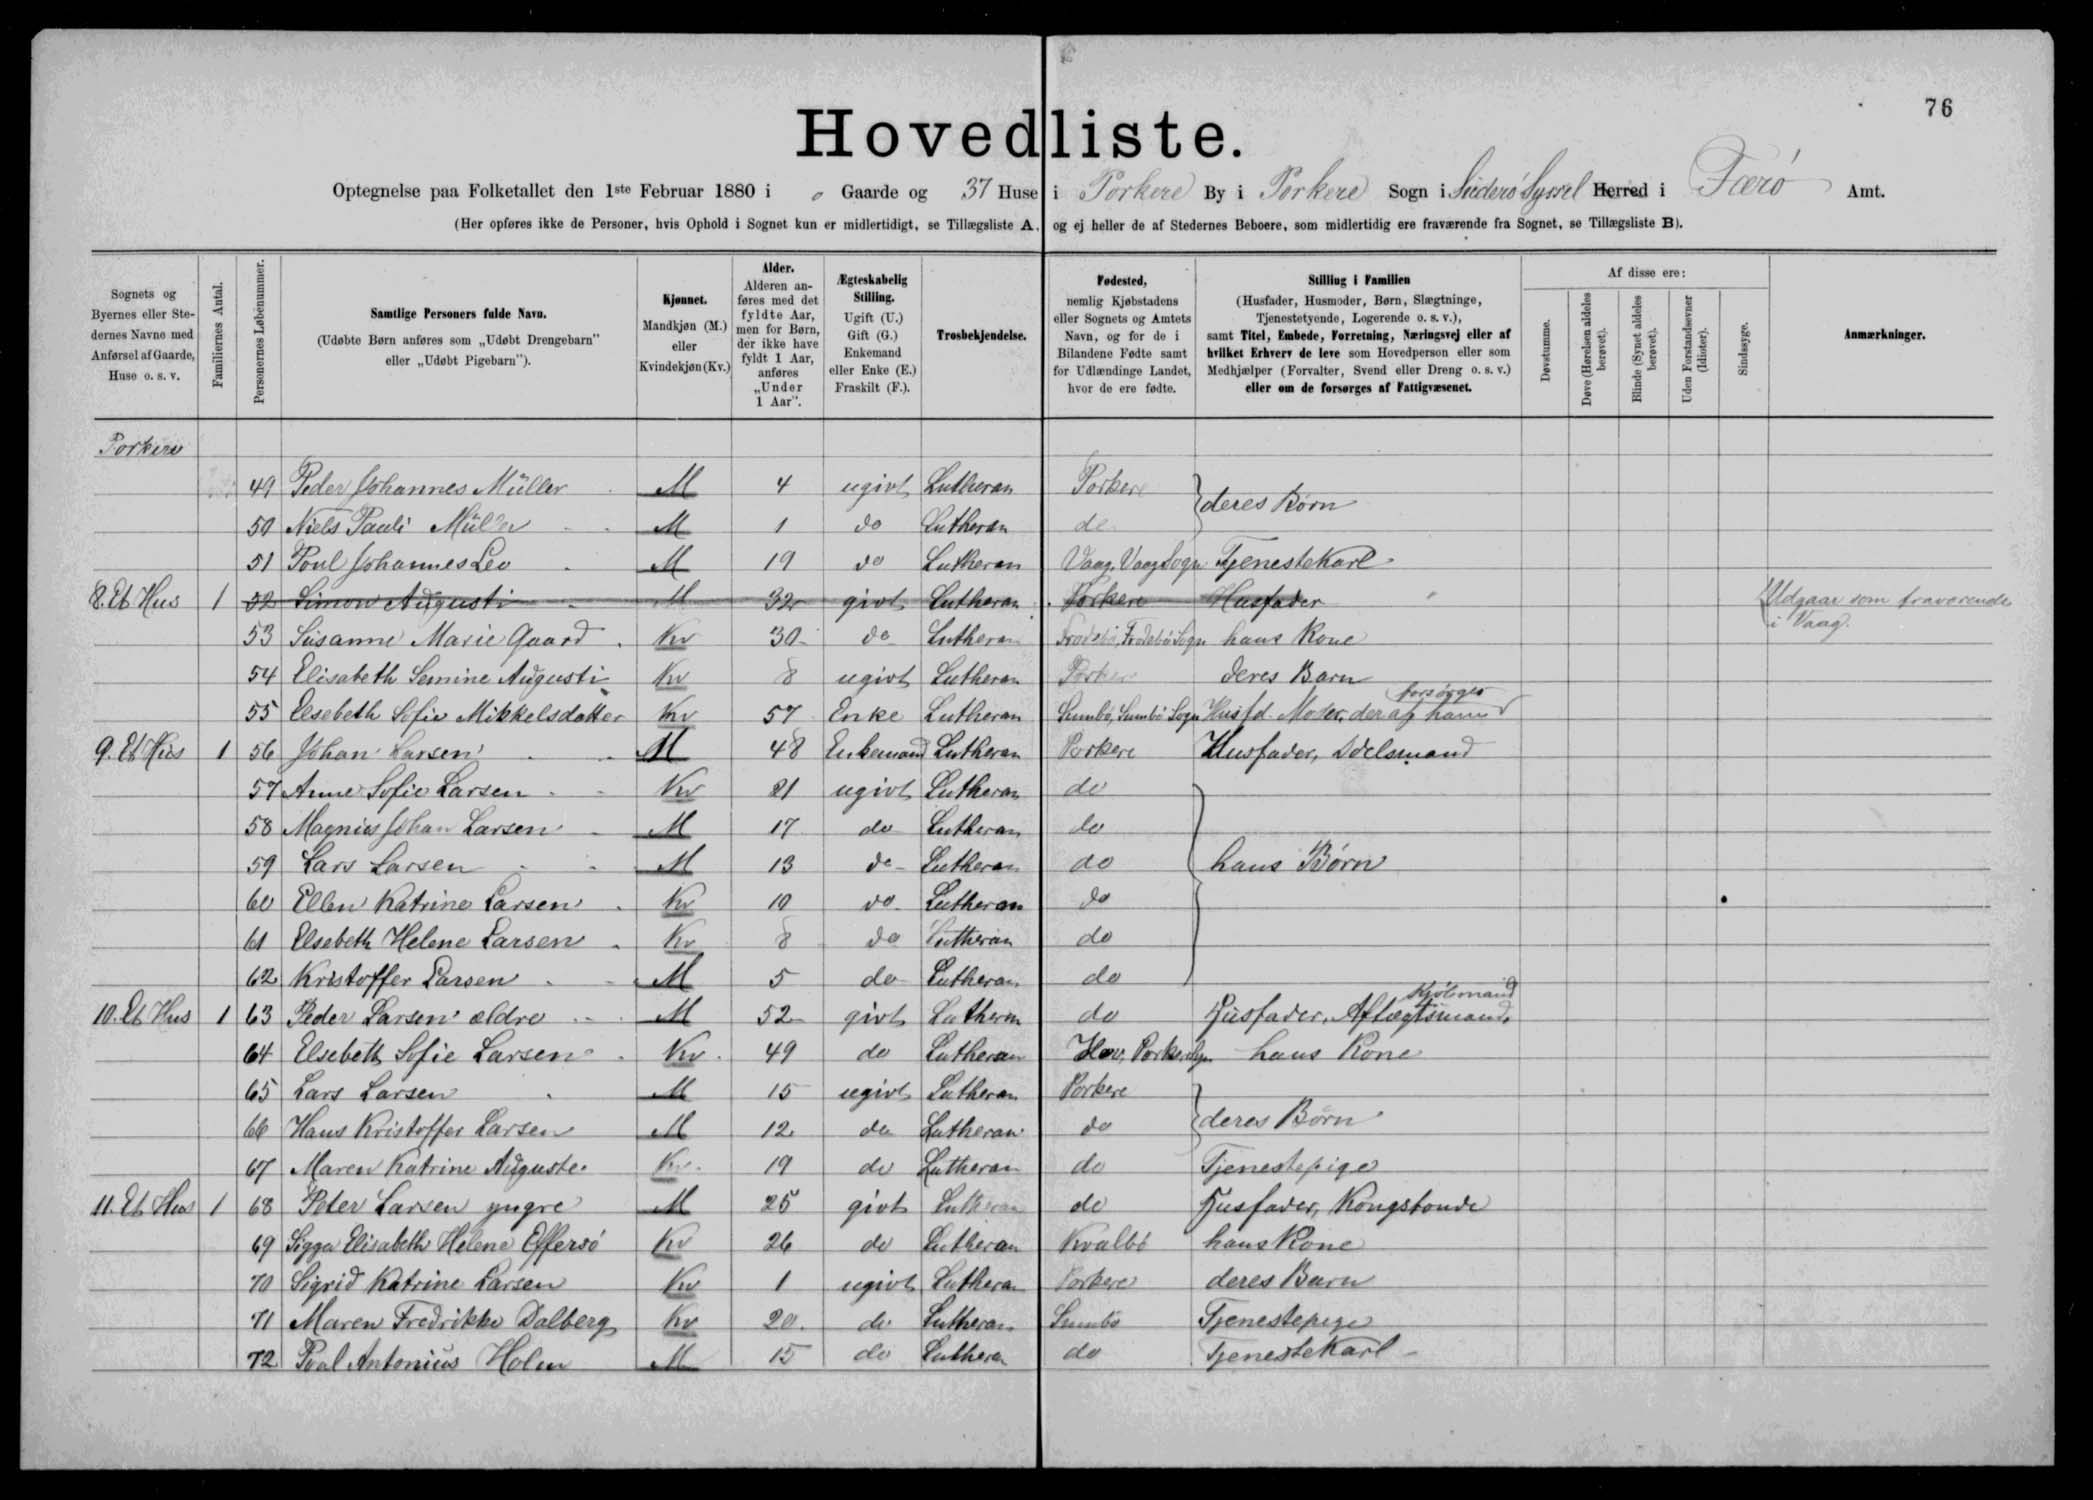 76
Hovedliste.
Optegnelse paa Folketallet den 1ste Februar 1880 i o Gaarde og 37 Huse i Porkere By i Porkere Sogn i Süderö Syssel Herred i Færö Amt.
(Her opføres ikke de Personer, hvis Ophold i Sognet kun er midlertidigt, se Tillægsliste A, og ej heller de af Stedernes Beboere, som midlertidig ere fraværende fra Sognet, se Tillægsliste B).
Sognets og Byernes eller Stedernes Navne med Anførsel af Gaarde, Huse o. s. v.
Familiernes Antal.
Personernes Løbenummer.
Samtlige Personers fulde Navn.
(Udøbte Børn anføres som „Udøbt Drengebarn" eller „Udøbt Pigebarn").
Kjønnet.
Mandkjøn (M.) eller Kvindekjøn (Kv.)
Alder.
Alderen anføres med det fyldte Aar, men for Børn, der ikke have fyldt 1 Aar, anføres „Under 1 Aar".
Ægteskabelig Stilling.
Ugift (U.) Gift (G.) Enkemand eller Enke (E.) Fraskilt (F.).
Trosbekjendelse.
Fødested,
nemlig Kjøbstadens eller Sognets og Amtets Navn, og for de i Bilandene Fødte samt for Udlændinge Landet, hvor de ere fødte.
Stilling i Familien
(Husfader, Husmoder, Børn, Slægtninge, Tjenestetyende, Logerende o. s. v.),
samt Titel, Embede, Forretning, Næringsvej eller af hvilket Erhverv de leve som Hovedperson eller som Medhjælper (Forvalter, Svend eller Dreng o. s. v.) eller om de forsørges af Fattigvæsenet.
Af disse ere:
Døvstumme.
Døve (Hørelsen aldeles berøvet).
Blinde (Synet aldeles berøvet).
Uden Forstandsevner (Idioter).
Sindssyge.
Anmærkninger.
Porkere
49 Peder Johannes Müller M 4 ugivt Lutheran Porkere } deres Börn
50 Niels Pauli Müller M 1 do Lutheran do
51 Poul Johannes Leo M 19 do Lutheran Vaag, Vaag Sogn Tjenestekarl
8. Et Hus 1 52 Simon Augusti M 32 givt Lutheran Porkere Husfader Udgaar som fraværende i Vaag.
53 Susanne Marie Gaard Kv 30 do Lutheran Frodebö, Frodebö Sogn hans Kone
54 Elisabeth Semine Augusti Kv 8 ugivt Lutheran Porkere deres Barn
55 Elsebeth Sofie Mikkelsdatter Kv 57 Enke Lutheran Sumbö, Sumbö Sogn Husfd. Moder, der forsørges af ham
9. Et Hus 1 56 Johan Larsen M 48 Enkemand Lutheran Porkere Husfader, Odelsmand
57 Anne Sofie Larsen Kv 21 ugivt Lutheran do
58 Magnus Johan Larsen M 17 do Lutheran do
59 Lars Larsen M 13 do Lutheran do } hans Börn
60 Ellen Katrine Larsen Kv 10 do Lutheran do
61 Elsebeth Helene Larsen Kv 8 do Lutheran do
62 Kristoffer Larsen M 5 do Lutheran do
10. Et Hus 1 63 Peder Larsen ældre M 52 givt Lutheran do Husfader, Aftægtsmand, Kjöbmand
64 Elsebeth Sofie Larsen Kv 49 do Lutheran Hov, Porkere Sgn hans Kone
65 Lars Larsen M 15 ugivt Lutheran Porkere } deres Börn
66 Hans Kristoffer Larsen M 12 do Lutheran do
67 Maren Katrine Auguste Kv 19 do Lutheran do Tjenestepige
11. Et Hus 1 68 Peter Larsen yngre M 25 givt Lutheran do Husfader, Kongsbonde
69 Sigga Elisabeth Helene Effersö Kv 26 do Lutheran Kvalbö hans Kone
70 Sigrid Katrine Larsen Kv 1 ugivt Lutheran Porkere deres Barn
71 Maren Fredrikke Dalberg Kv 20 do Lutheran Sumbö Tjenestepige
72 Poal Antonius Holm M 15 do Lutheran do Tjenestekarl